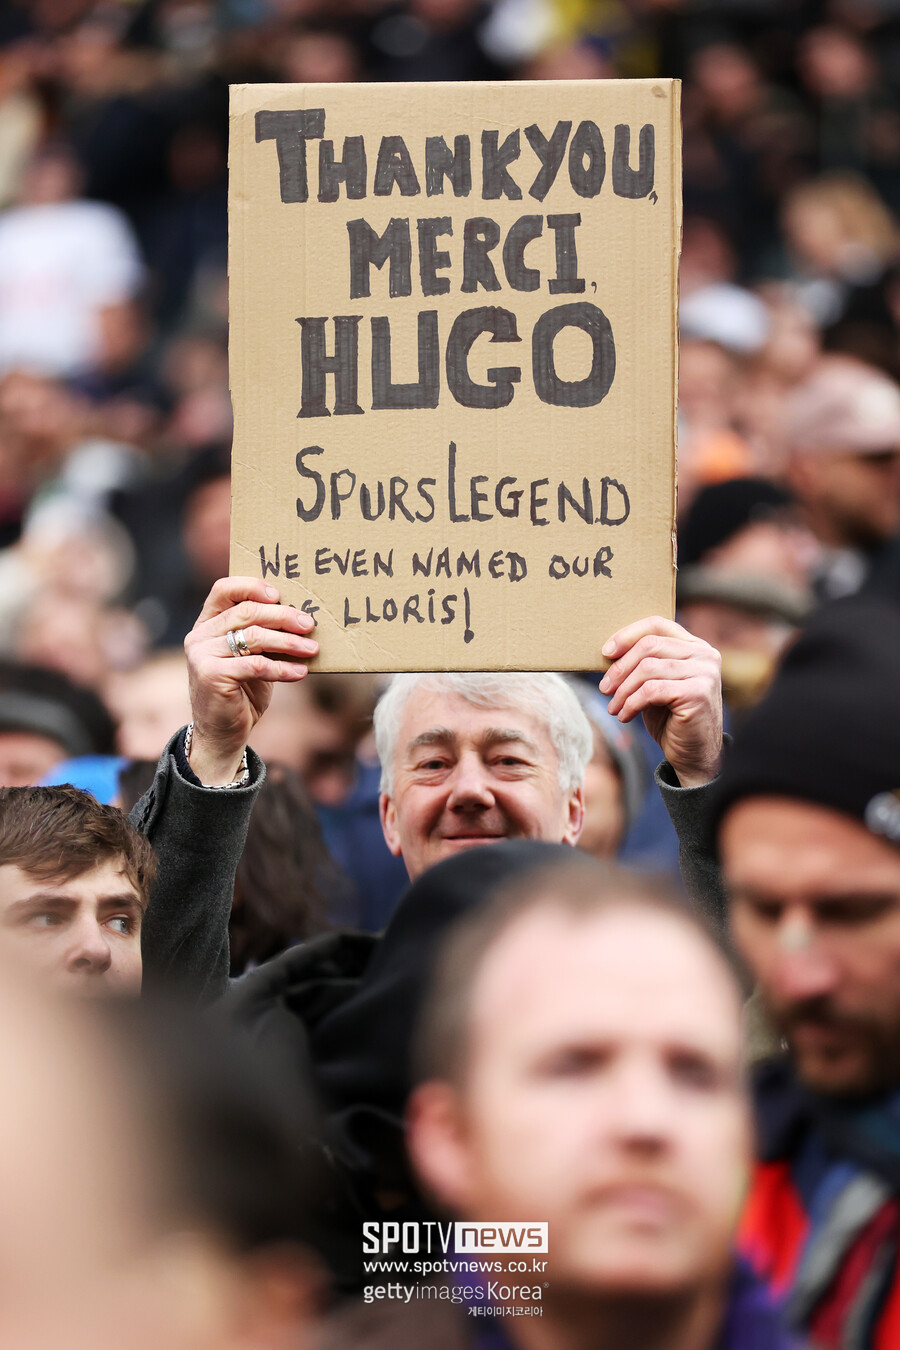 THANKYOU,
MERCI,
HUGO
SPURS LEGEND
WE EVEN NAMED OUR
LLORIS!
SPOTV NEWS
www.spotvnews.co.kr
gettyimages Korea
게티이미지코리아